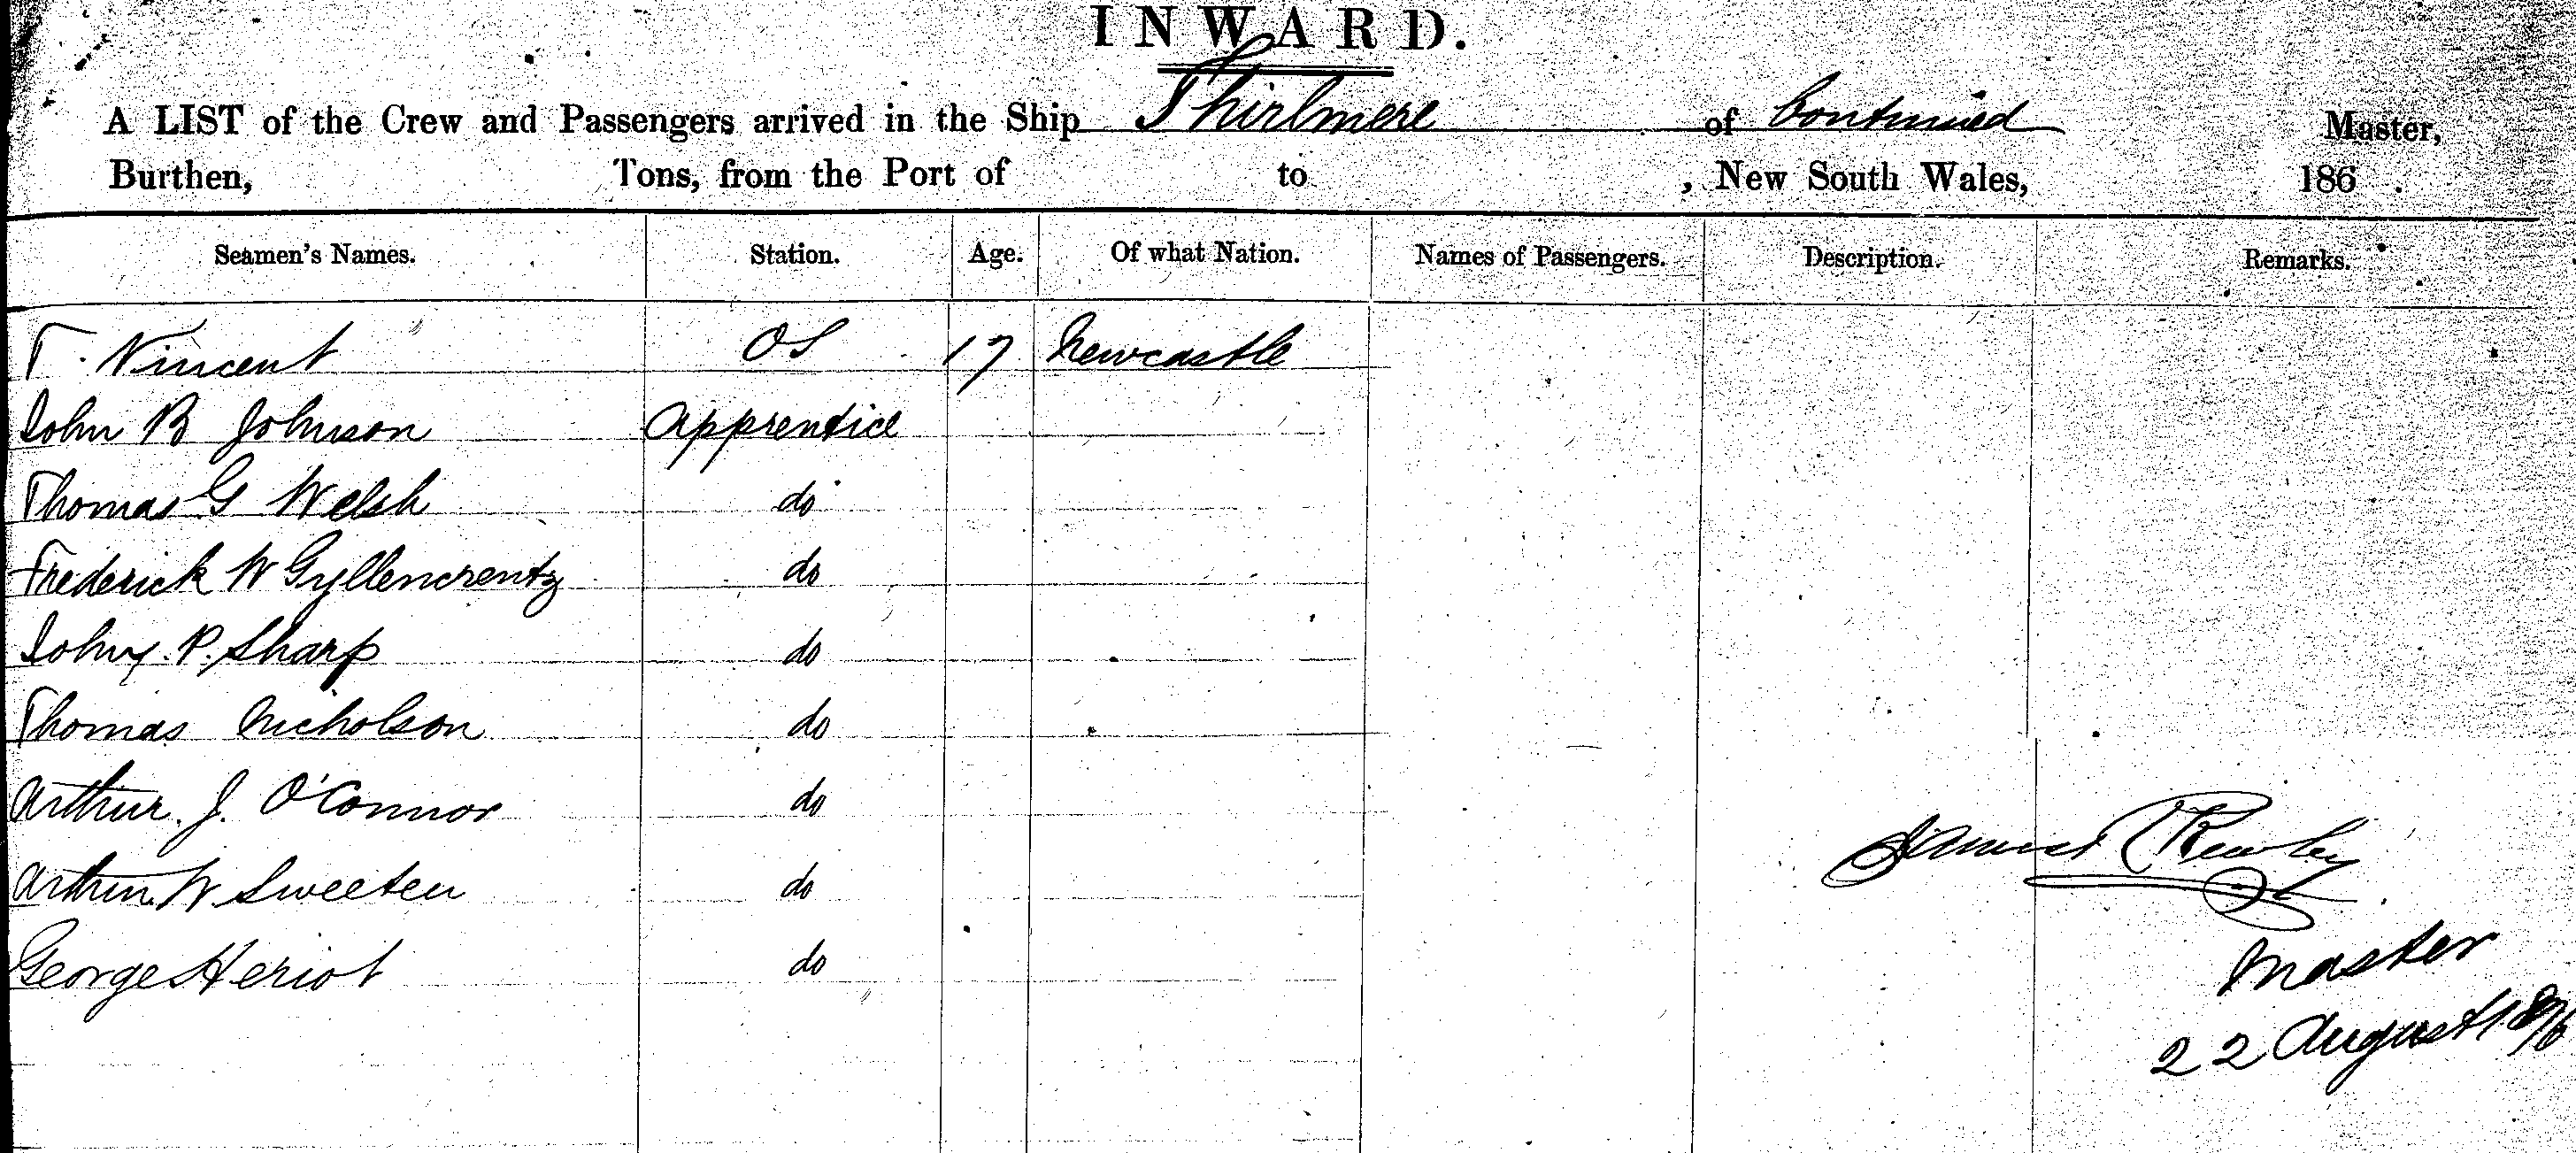 INWARD.
A LIST of the Crew and Passengers arrived in the Ship Thirlmere of Continued Master,
Burthen, Tons, from the Port of to , New South Wales, 186 .
Seamen's Names. Station. Age. Of what Nation. Names of Passengers. Description. Remarks.
T. Vincent OS 17 Newcastle
John B Johnson Apprentice
Thomas G Welsh do
Frederick W Gyllencrentz do
John P. Sharp do
Thomas Nicholson do
Arthur. J. O'Connor do
Arthur W Sweeten do
George Heriot do
James
Master
22 August 1876